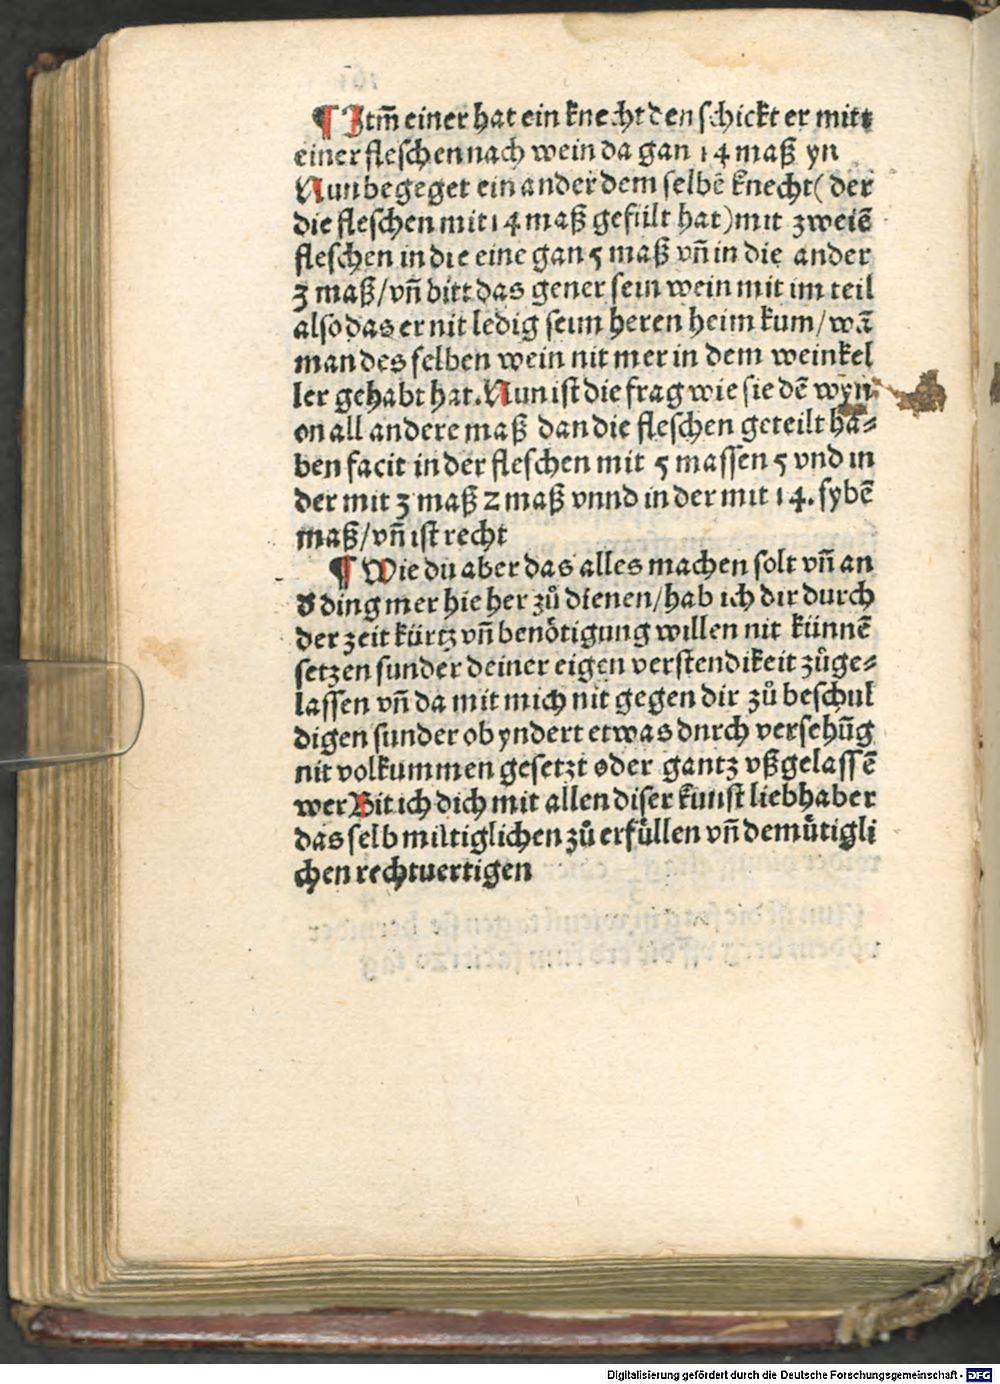 ¶ Itm̄ einer hat ein knecht den schickt er mitt
einer fleschen nach wein da gan 14 maß yn
Nun begeget ein ander dem selbē knecht( der
die fleschen mit 14 maß gefült hat)mit zweiē
fleschen in die eine gan 5 maß vn̄ in die ander
3 maß/vn̄ bitt das gener sein wein mit im teil
also das er nit ledig seim heren heim kum/wā
man des selben wein nit mer in dem weinkel
ler gehabt hat. Nun ist die frag wie sie dē wyn
on all andere maß dan die fleschen geteilt ha⸗
ben facit in der fleschen mit 5 massen 5 vnd in
der mit 3 maß 2 maß vnnd in der mit 14. sybē
maß/vn̄ ist recht
¶ Wie du aber das alles machen solt vn̄ an
ď ding mer hie her zů dienen/hab ich dir durch
der zeit kürtz vn̄ benötigung willen nit künnē
setzen sunder deiner eigen verstendikeit zůge⸗
lassen vn̄ da mit mich nit gegen dir zů beschul
digen sunder ob yndert etwas dnrch versehūg
nit volkummen gesetzt oder gantz vßgelassē
wer Bit ich dich mit allen diser kunst liebhaber
das selb miltiglichen zů erfüllen vn̄ demütigli
chen rechtuertigen
Digitalisierung gefördert durch die Deutsche Forschungsgemeinschaft - DFG